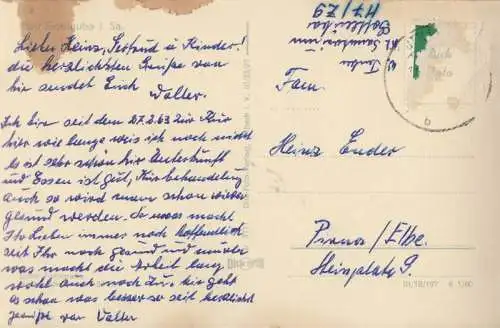 Lieber Heinz, Gertrud u. Kinder!
die herzlichsten Grüße von
hir sendet Euch
Walter.
Ich bin seit dem 27.2.63 zur Kur
hir wie lange weis ich noch nicht
es ist sehr schön hir Unterkunft
und Essen ist gut, Kürbehandlung
auch so wird man schon wieder
gesund werden. So was macht
Ihr Lieben immer noch hoffendlich
seit Ihr noch gesund und munter
was macht die Arbeit lang
wohl auch noch zu, hir geht
es schon was besser so seit herzlichst
gegrüßt von Walter
Sanatorium
H 7 / Z 9
Fam
Heinz Ender
Pirna / Elbe.
Steinplatz 9.
III/18/197 K 1/60